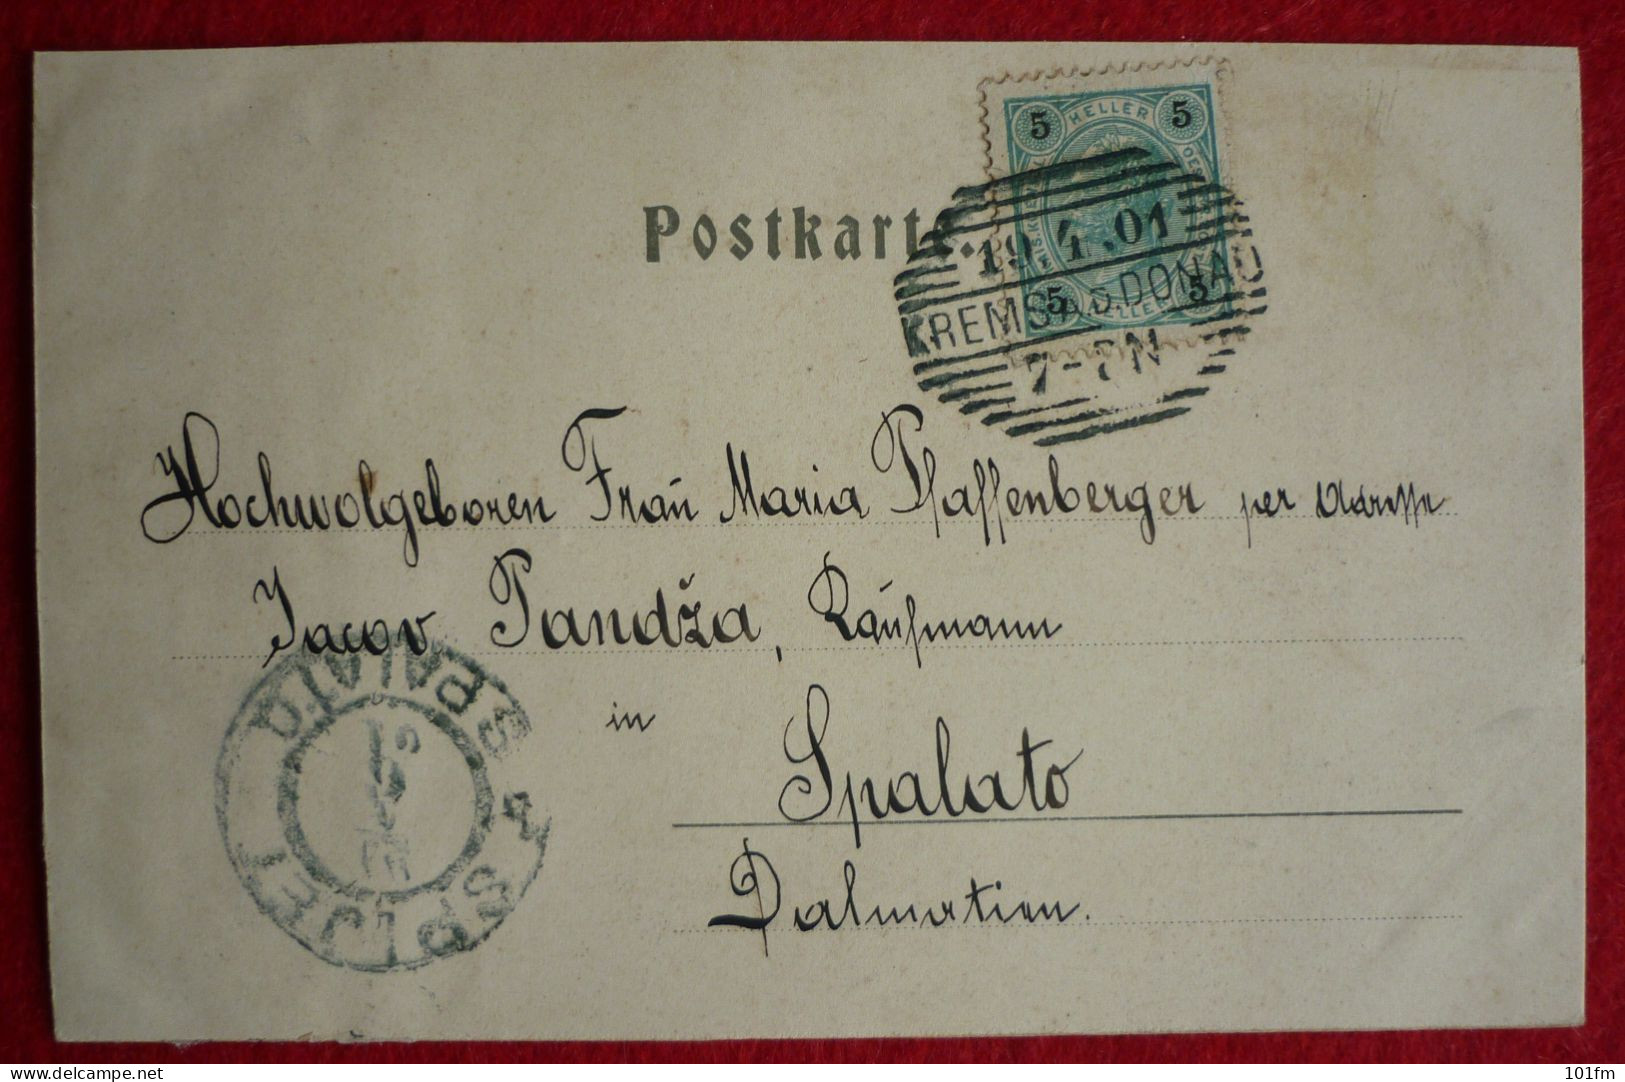 Postkarte.
5 HELLER 5
19.4.01
KREMS A.D.DONAU
5 HELLER 5
7-
Hochwolgeboren Frau Maria Pfaffenberger per Adresse
Jacov Pandža, Kaufmann
in
Spalato
Dalmatien.
SPALATO
SPLJET
delcampe.net
101fm